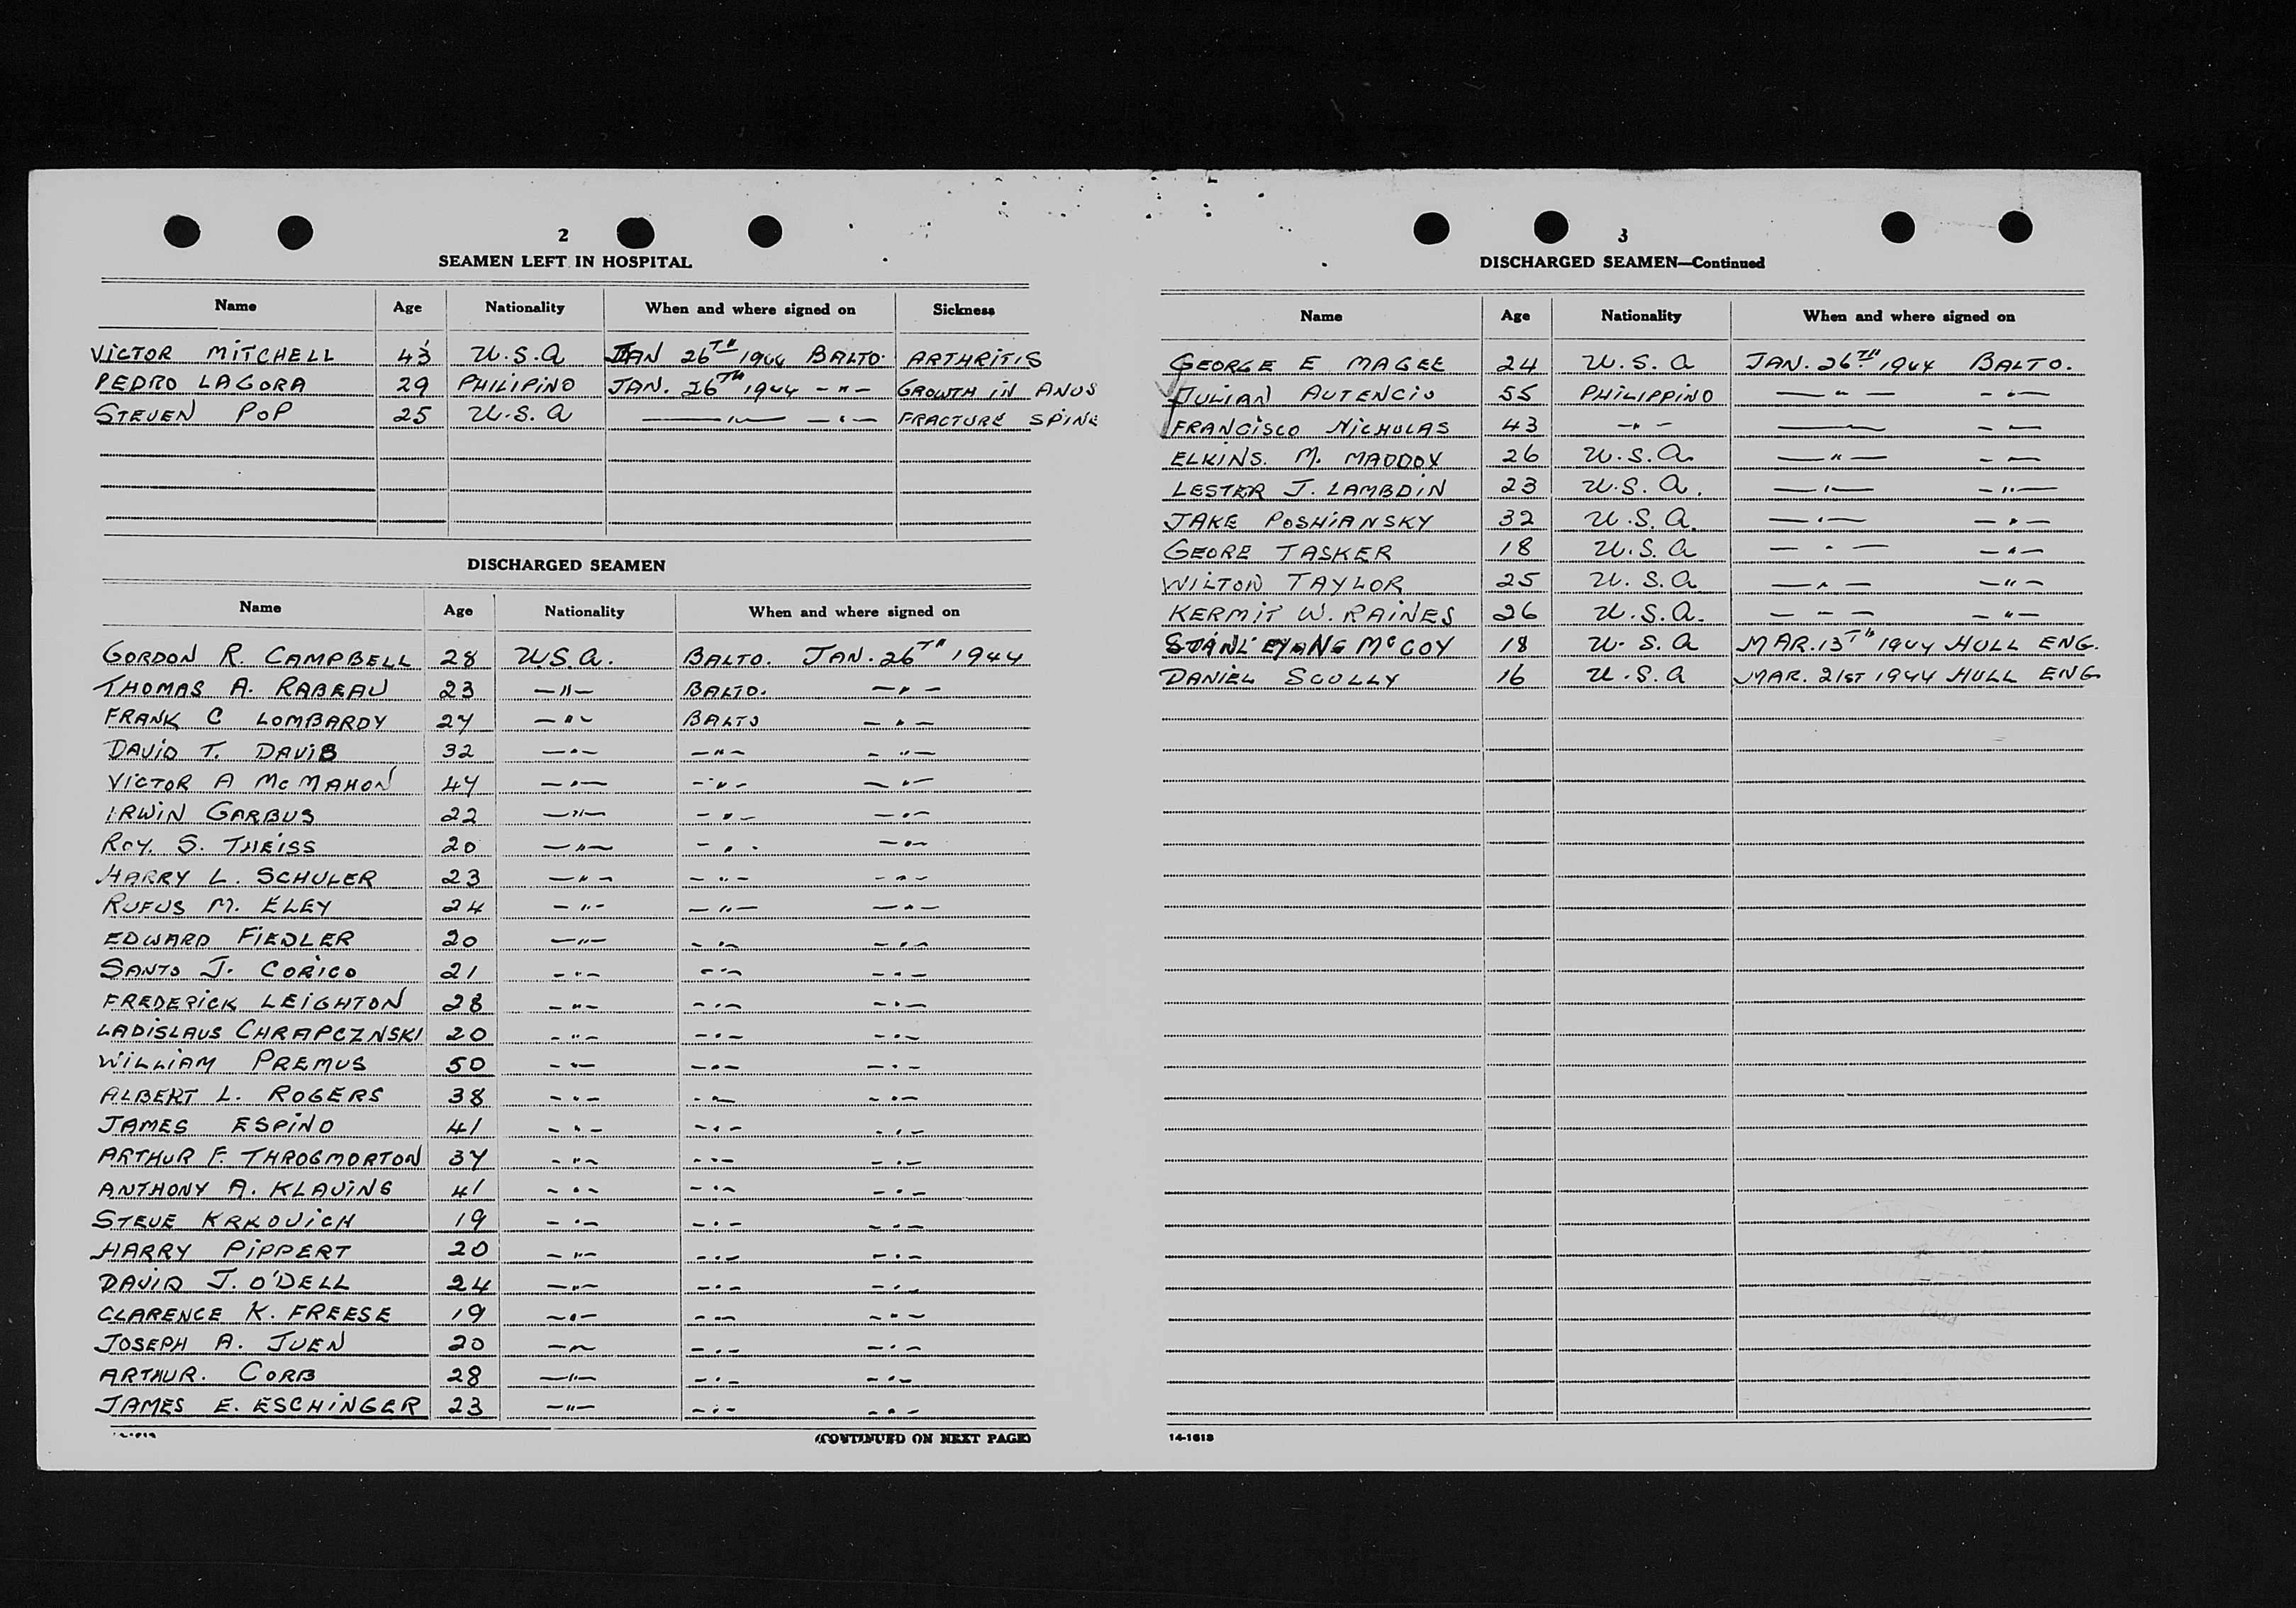 2
SEAMEN LEFT IN HOSPITAL
Name Age Nationality When and where signed on Sickness
VICTOR MITCHELL 43 U.S.A JAN 26TH 1944 BALTO. ARTHRITIS
PEDRO LAGORA 29 PHILIPINO JAN. 26TH 1944 —"— GROWTH IN ANUS
STEVEN POP 25 U.S.A —"— —"— FRACTURE SPINE
DISCHARGED SEAMEN
Name Age Nationality When and where signed on
GORDON R. CAMPBELL 28 U.S.A. BALTO. JAN. 26TH 1944
THOMAS A. RABEAU 23 —"— BALTO. —"—
FRANK C LOMBARDY 27 —"— BALTO —"—
DAVID T. DAVIS 32 —"— —"— —"—
VICTOR A MCMAHON 47 —"— —"— —"—
IRWIN GARBUS 22 —"— —"— —"—
ROY. S. THEISS 20 —"— —"— —"—
HARRY L. SCHULER 23 —"— —"— —"—
RUFUS M. ELEY 24 —"— —"— —"—
EDWARD FIEDLER 20 —"— —"— —"—
SANTO J. CORICO 21 —"— —"— —"—
FREDERICK LEIGHTON 28 —"— —"— —"—
LADISLAUS CHRAPCZNSKI 20 —"— —"— —"—
WILLIAM PREMUS 50 —"— —"— —"—
ALBERT L. ROGERS 38 —"— —"— —"—
JAMES ESPINO 41 —"— —"— —"—
ARTHUR F. THROGMORTON 37 —"— —"— —"—
ANTHONY A. KLAVING 41 —"— —"— —"—
STEVE KRKOVICH 19 —"— —"— —"—
HARRY PIPPERT 20 —"— —"— —"—
DAVID J. O'DELL 24 —"— —"— —"—
CLARENCE K. FREESE 19 —"— —"— —"—
JOSEPH A. JUEN 20 —"— —"— —"—
ARTHUR. CORB 28 —"— —"— —"—
JAMES E. ESCHINGER 23 —"— —"— —"—
(CONTINUED ON NEXT PAGE)
3
DISCHARGED SEAMEN—Continued
Name Age Nationality When and where signed on
GEORGE E MAGEE 24 U.S.A JAN. 26TH 1944 BALTO.
JULIAN AUTENCIO 55 PHILIPPINO —"— —"—
FRANCISCO NICHOLAS 43 —"— —"— —"—
ELKINS. M. MADDOX 26 U.S.A. —"— —"—
LESTER J. LAMBDIN 23 U.S.A. —"— —"—
JAKE POSHIANSKY 32 U.S.A. —"— —"—
GEORE TASKER 18 U.S.A —"— —"—
WILTON TAYLOR 25 U.S.A —"— —"—
KERMIT W. RAINES 26 U.S.A. —"— —"—
MCCOY 18 U.S.A MAR. 13TH 1944 HULL ENG.
DANIEL SCULLY 16 U.S.A MAR. 21ST 1944 HULL ENG
14-1613